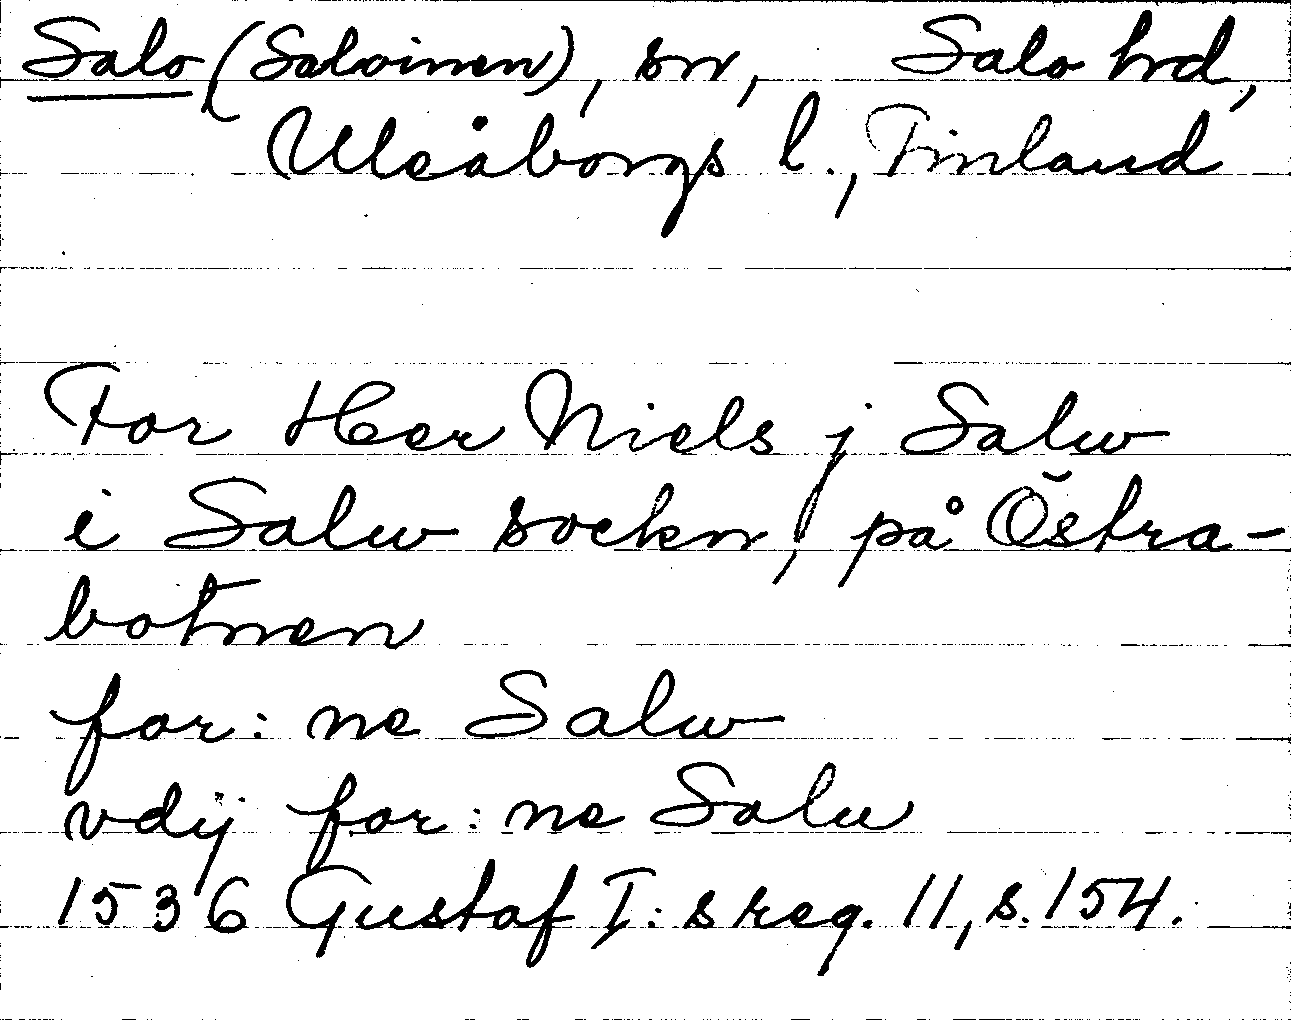 Salo (Saloinen), sn, Salo hrd,
Uleåborgs l., Finland
For Her Niels j Salw
i Salw sockn, på Östra-
botnen
for: ne Salw
vdij for: ne Salw
1536 Gustaf I:s reg. 11, s. 154.